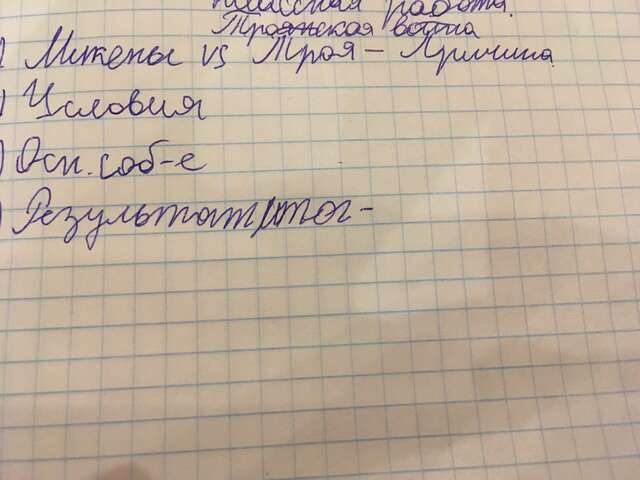 работа.
Троянская война
) Микены и Троя – Причина
) Условия
) Осн. соб-е
) Результат/итог-